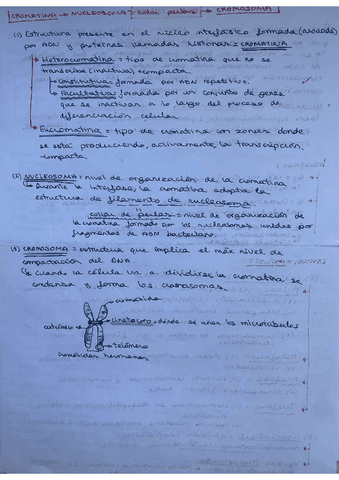 CROMATINA → NUCLEOSOMA? collar perlas → CROMOSOMA
(1) Estructura presente en el núcleo interfásico formada (asociada)
por ADN y proteínas llamadas histonas = CROMATINA
Heterocromatina = tipo de cromatina que no se
transcribe (inactiva) +compacta.
Constitutiva: formada por ADN repetitivo.
Facultativa: formada por un conjunto de genes
que se inactivan a lo largo del proceso de
diferenciación celular
Eucromatina = tipo de cromatina con zonas donde
se está produciendo, activamente, la transcripción.
-compacta.
(2) NUCLEOSOMA = nivel de organización de la cromatina
Durante la interfase, la cromatina adopta la
estructura de filamento de nucleosoma.
collar de perlas = nivel de organización de
la cromatina formada por los nucleosomas unidos por
fragmentos de ADN
(3) CROMOSOMA = estructura que implica el máx nivel de
compactación del DNA
Cuando la célula va a dividirse, la cromatina se
condensa y forma los cromosomas.
cromátida
centrómero
cinetocoro: dónde se unen los microtúbulos
telómero
cromátidas hermanas